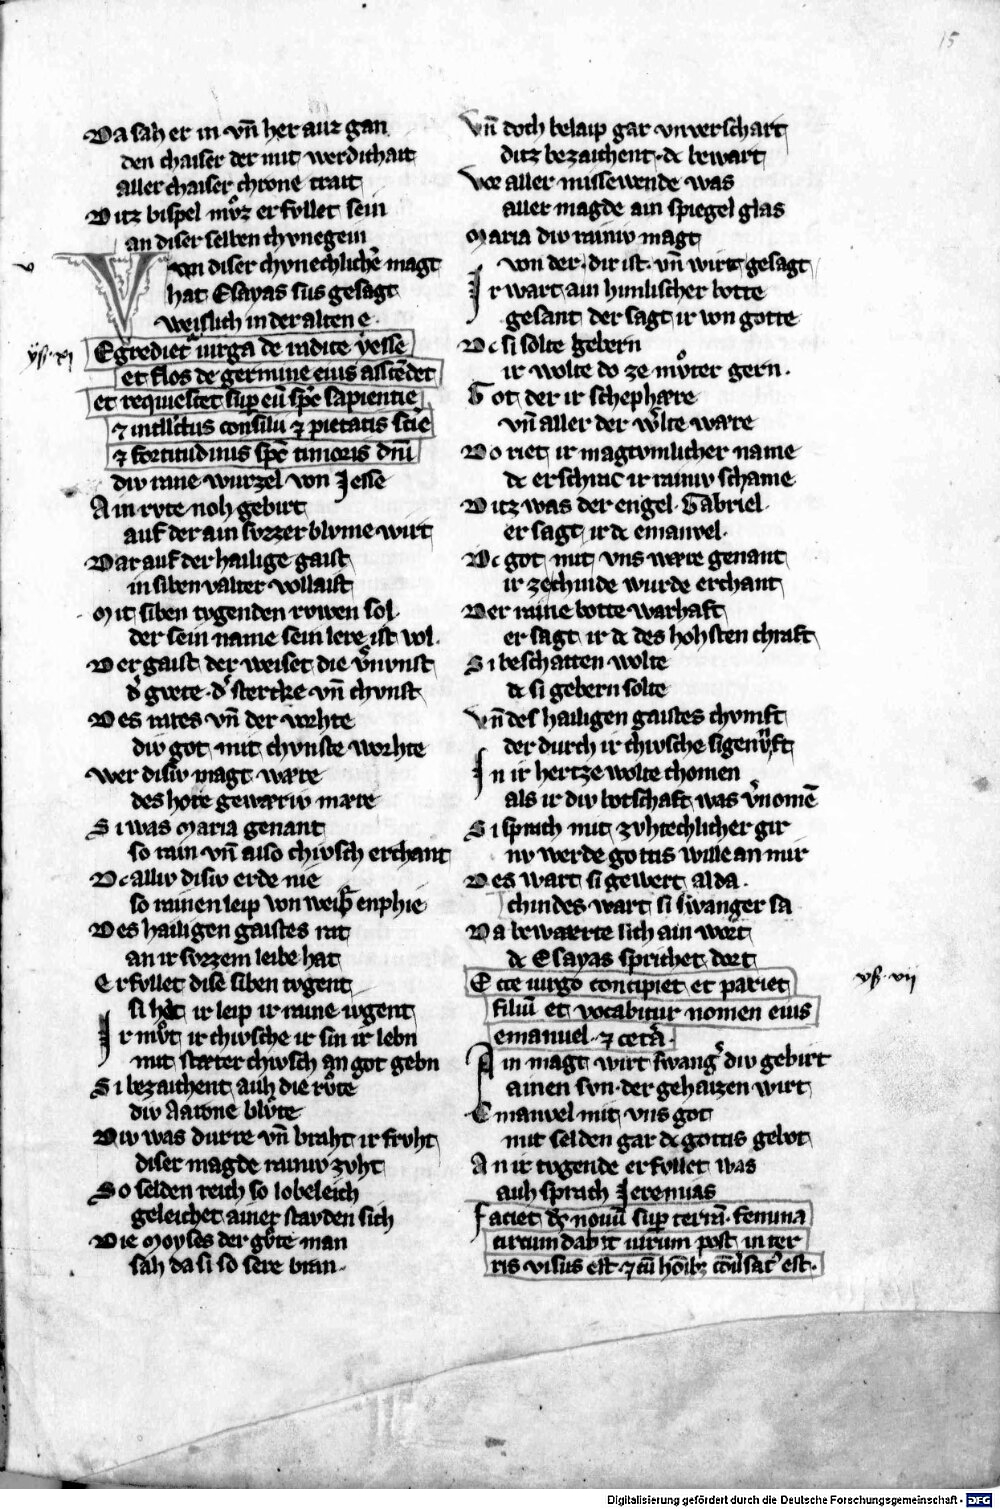 15
Da sah er in vn̄ her auz gan
den chaiser der mit werdichait
aller chaiser chrone trait
Ditz bispel mv̊z erfvllet sein
an diser selben chvnegein
Von diser chvnechlicher magt
hat Esayas sus gesagt
weislich in der alten e.
ys. xi
Egrediet᷑ uirga de radice yesse
et flos de germine eius ascēdet
et requiescet sup eū sp̄c sapientie
⁊ intll̄ctus consilii ⁊ pietatis scīe
⁊ fortitudinis sp̄c timoris dn̄i
div raine wurzel von Jesse
Ain rvte noh gebirt
auf der ain svzzer blvme wirt
Dar auf der hailige gaist
in siben valter vollaist
Mit siben tvgenden rvwen sol.
der sein name sein lere ist vol.
Der gaist der weiset die v̓nvnst
d̓ gvete. d̓ stercke vn̄ chvnst
Des rates vn̄ der vorhte
div got mit chvnste worhte
Wer disiv magt wære
des hore gewæriv mære
Si was Maria genant
so rain vn̄ also chivsch erchant
Dc alliv disiv erde nie
so rainen leip von weib enphie
Des hailigen gaistes rat
an ir svzzem leibe hat
Erfvllet dise siben tvgent
ir leip ir raine iugent
Ir mv̊t ir chivsche ir sin ir lebn
mit stæter chivsch an got gebn
Si bezaichent auh die rv̊te
div Aarone blv̊te
Div was durre vn̄ braht ir frvht
diser magde rainiv zvht
So selden reich so lobeleich
geleichet ainer stavden sich
Die Moyses der gv̊te man
sah da si so sere bran.
Vn̄ doch belaip gar vnverschart
ditz bezaichent. dc bewart
Vor aller missewende was
aller magde ain spiegel glas
Maria div rainiv magt
von der. dir ist. vn̄ wirt gesagt
Ir wart ain himlischer botte
gesant der sagt ir von gotte
Dc si solte gebern
ir wolte do ze mv̊ter gern.
Got der ir schephære
vn̄ aller der w̓lte wære
Do riet ir magtvmlicher name
dc erschrac ir rainiv schame
Ditz was der engel. Gabriel.
er sagt ir dc emanvel.
Dc got mit vns wære genant
ir ze chinde wurde erchant
Der raine botte warhaft
er sagt ir dc des hohsten chraft
Si beschatten wolte
dc si gebern solte
Vn̄ des hailigen gaistes chvnft
der durch ir chivsche sigenvnft
In ir hertze wolte chomen
als ir div botschaft was v̓nomē
Si sprach mit zvhtechlicher gir
nv werde gottis wille an mir
Des wart si gewert alda.
chindes wart si swanger sa
Da bewærte sich ain wort
dc Esayas sprichet dort
ys. vii
Ecce uirgo concipiet et pariet
filiū et vocabitur nomen eius
emanuel. ⁊ cetā.
Ain magt wirt swang̓ div gebirt
ainen svn. der gehaizen wirt
Emanvel mit vns got
mit selden gar dc gottis gebot
An ir tvgende erfvllet was
auh sprach Jeremias
Faciet dn̄s nouū sup terrā. femina
circumdabit uirum post in ter
ris visus est ⁊ cū hōībꝫ cōu̓sat᷑ est.
Digitalisierung gefördert durch die Deutsche Forschungsgemeinschaft - DFG